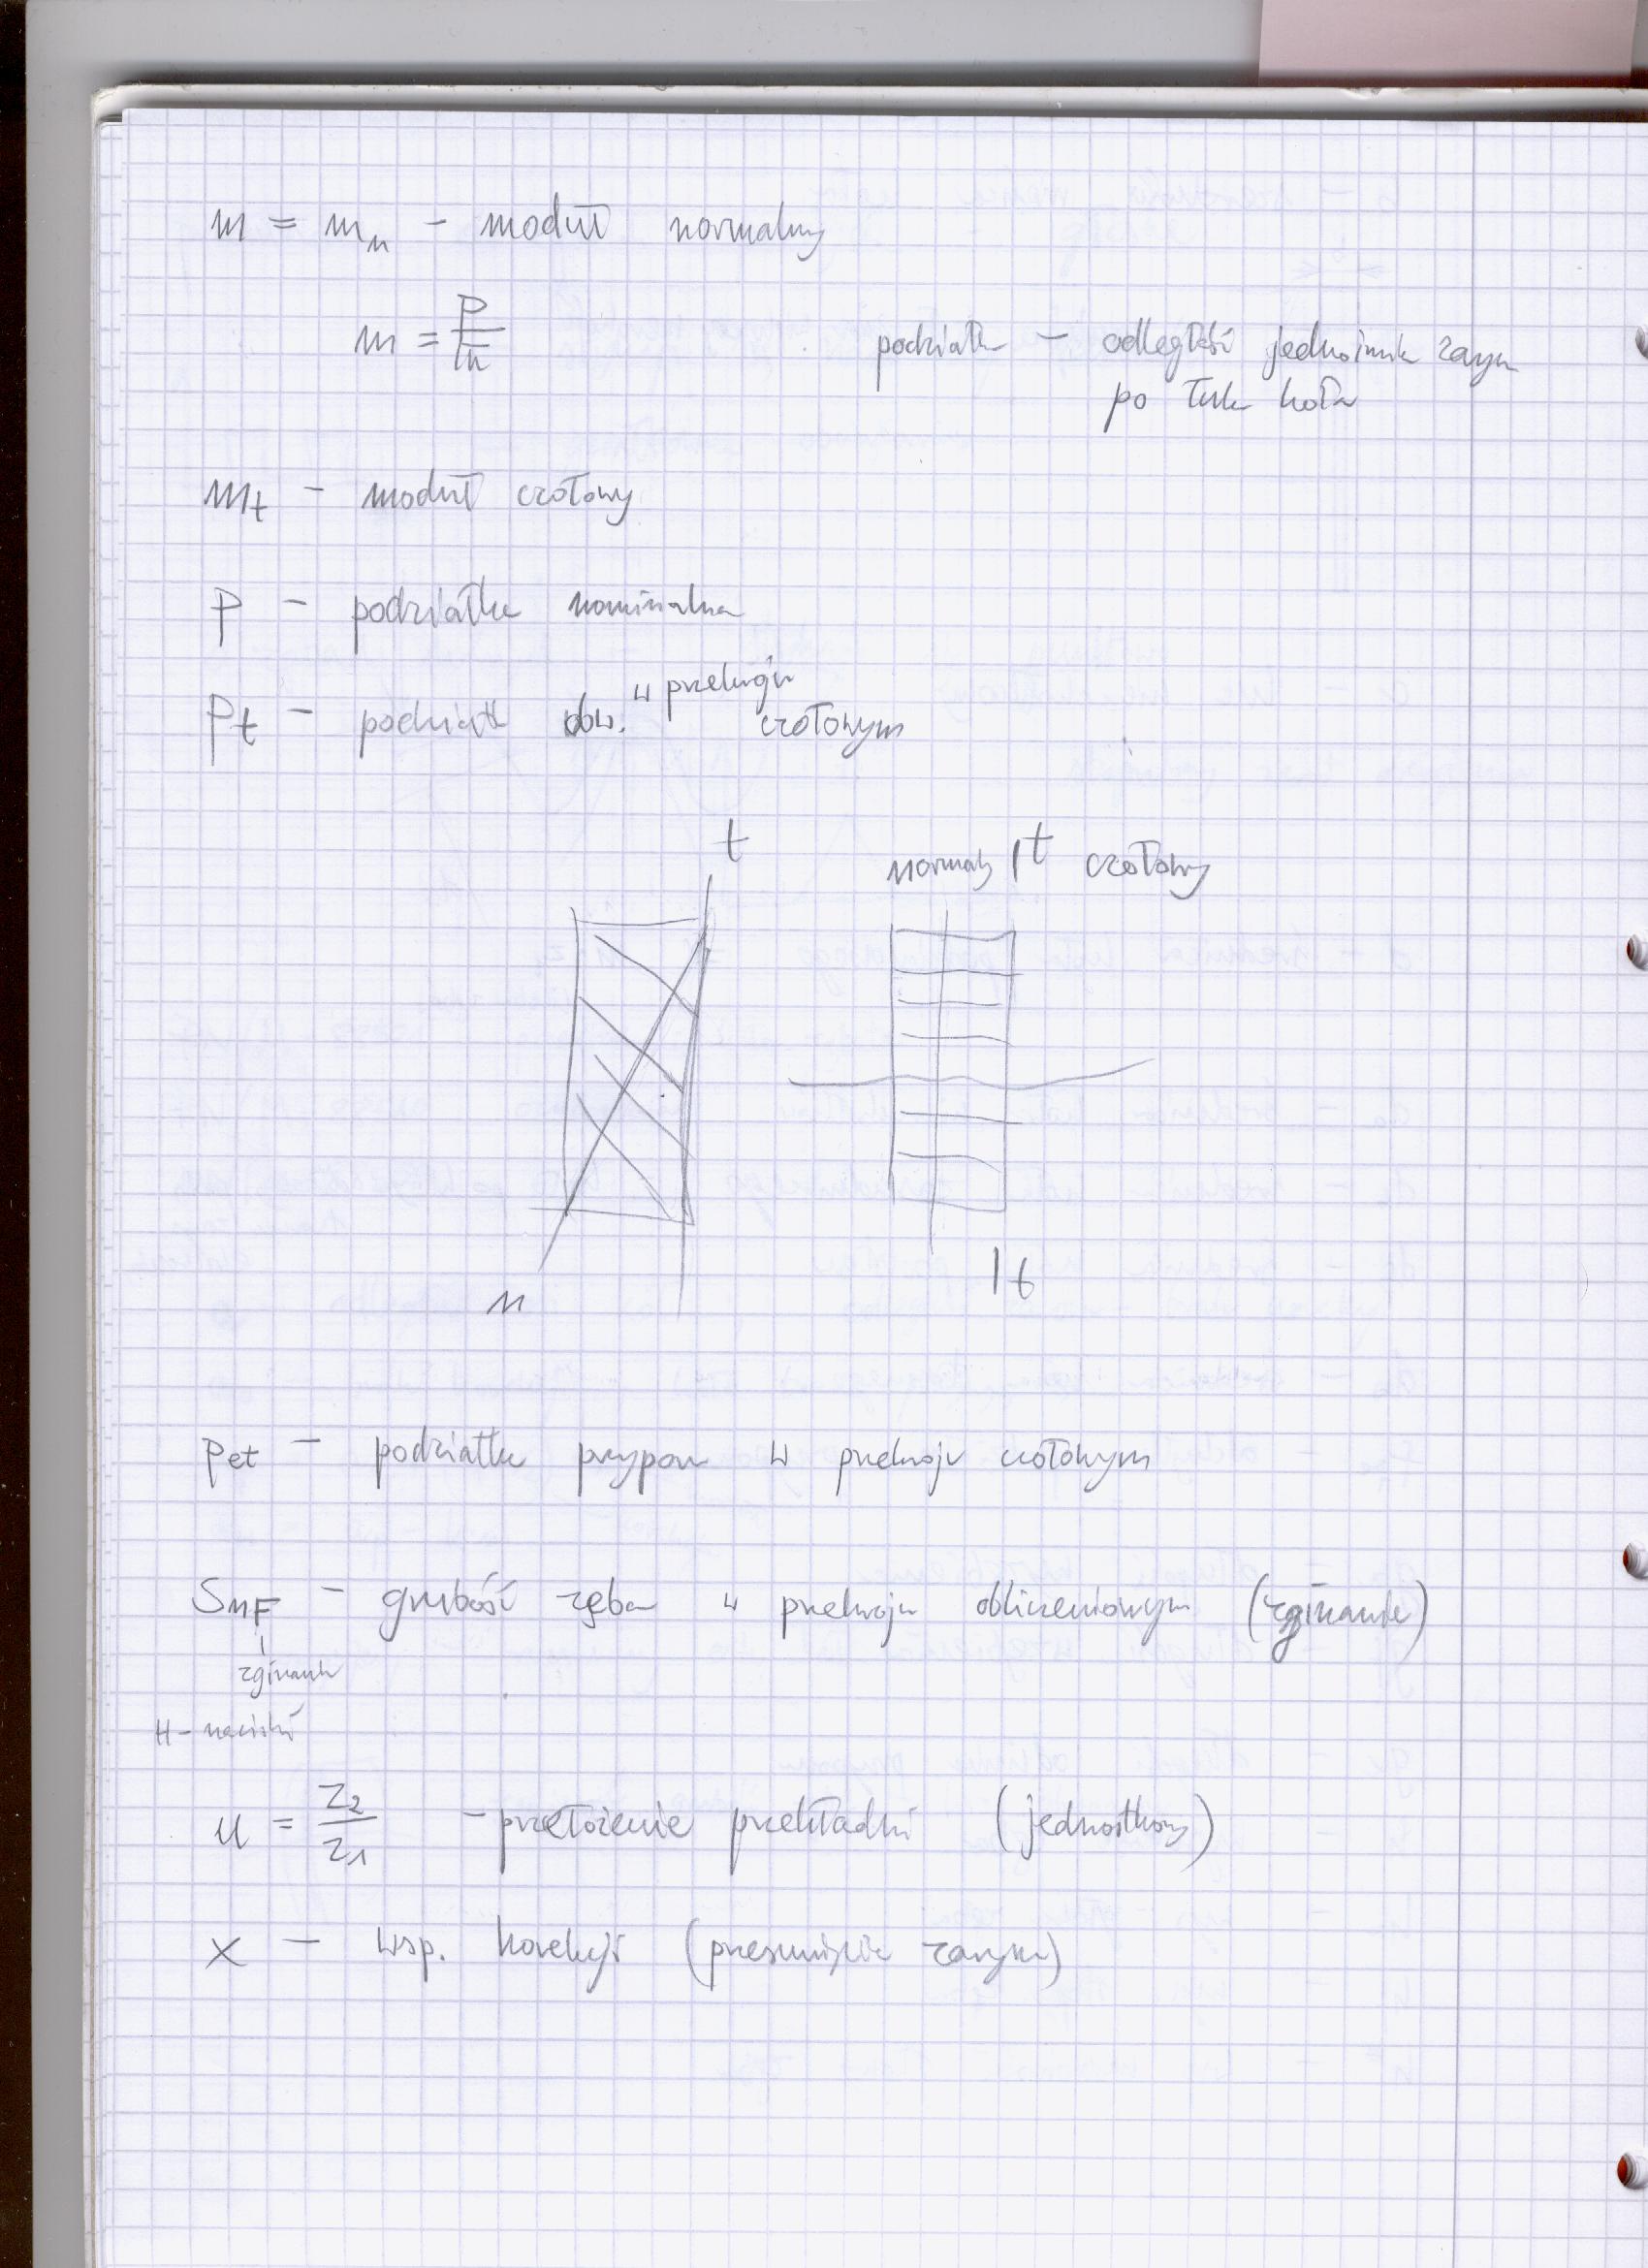 m = mn - moduł normalny
m = P/π podziałka - odległość jednoimien. zarys
po łuku koła
mt - moduł czołowy
P - podziałka nominalna
w przekroju
Pt - podziałk obw. czołowym
t
normalny | t czołowy
n
| t
Pet - podziałka przyporu w przekroju czołowym
SnF - grubość zęba w przekroju obliczeniowym (zginanie)
zginanie
H - naciski
u = z2/z1 - przełożenie przekładni (jednostkowy)
x - wsp. korekcji (przesunięcie zarysu)